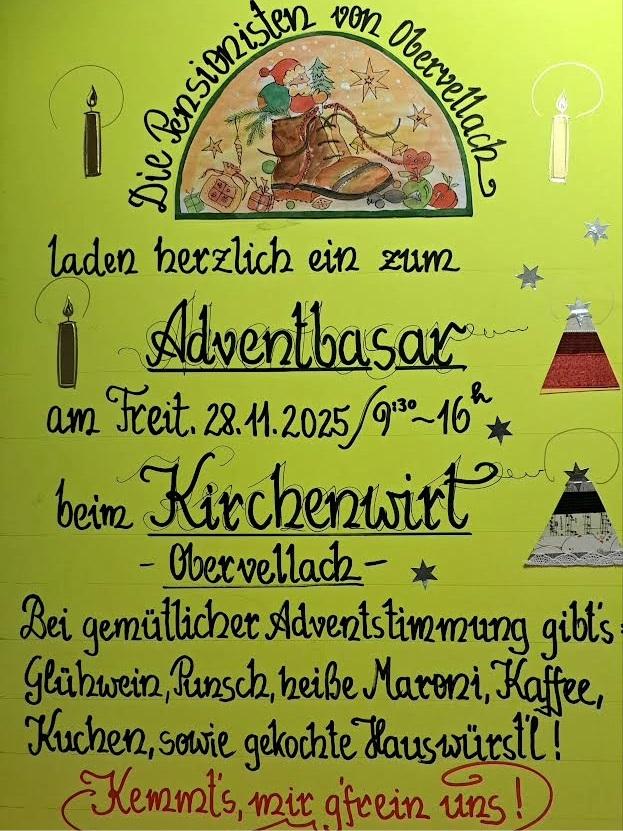 Die Pensionisten von Obervellach
laden herzlich ein zum
Adventbasar
am Freit. 28.11.2025/9:30~16h
beim Kirchenwirt
- Obervellach -
Bei gemütlicher Adventstimmung gibt's:
Glühwein, Punsch, heiße Maroni, Kaffee,
Kuchen, sowie gekochte Hauswürst'l!
Kemmt's, mir g'frein uns!